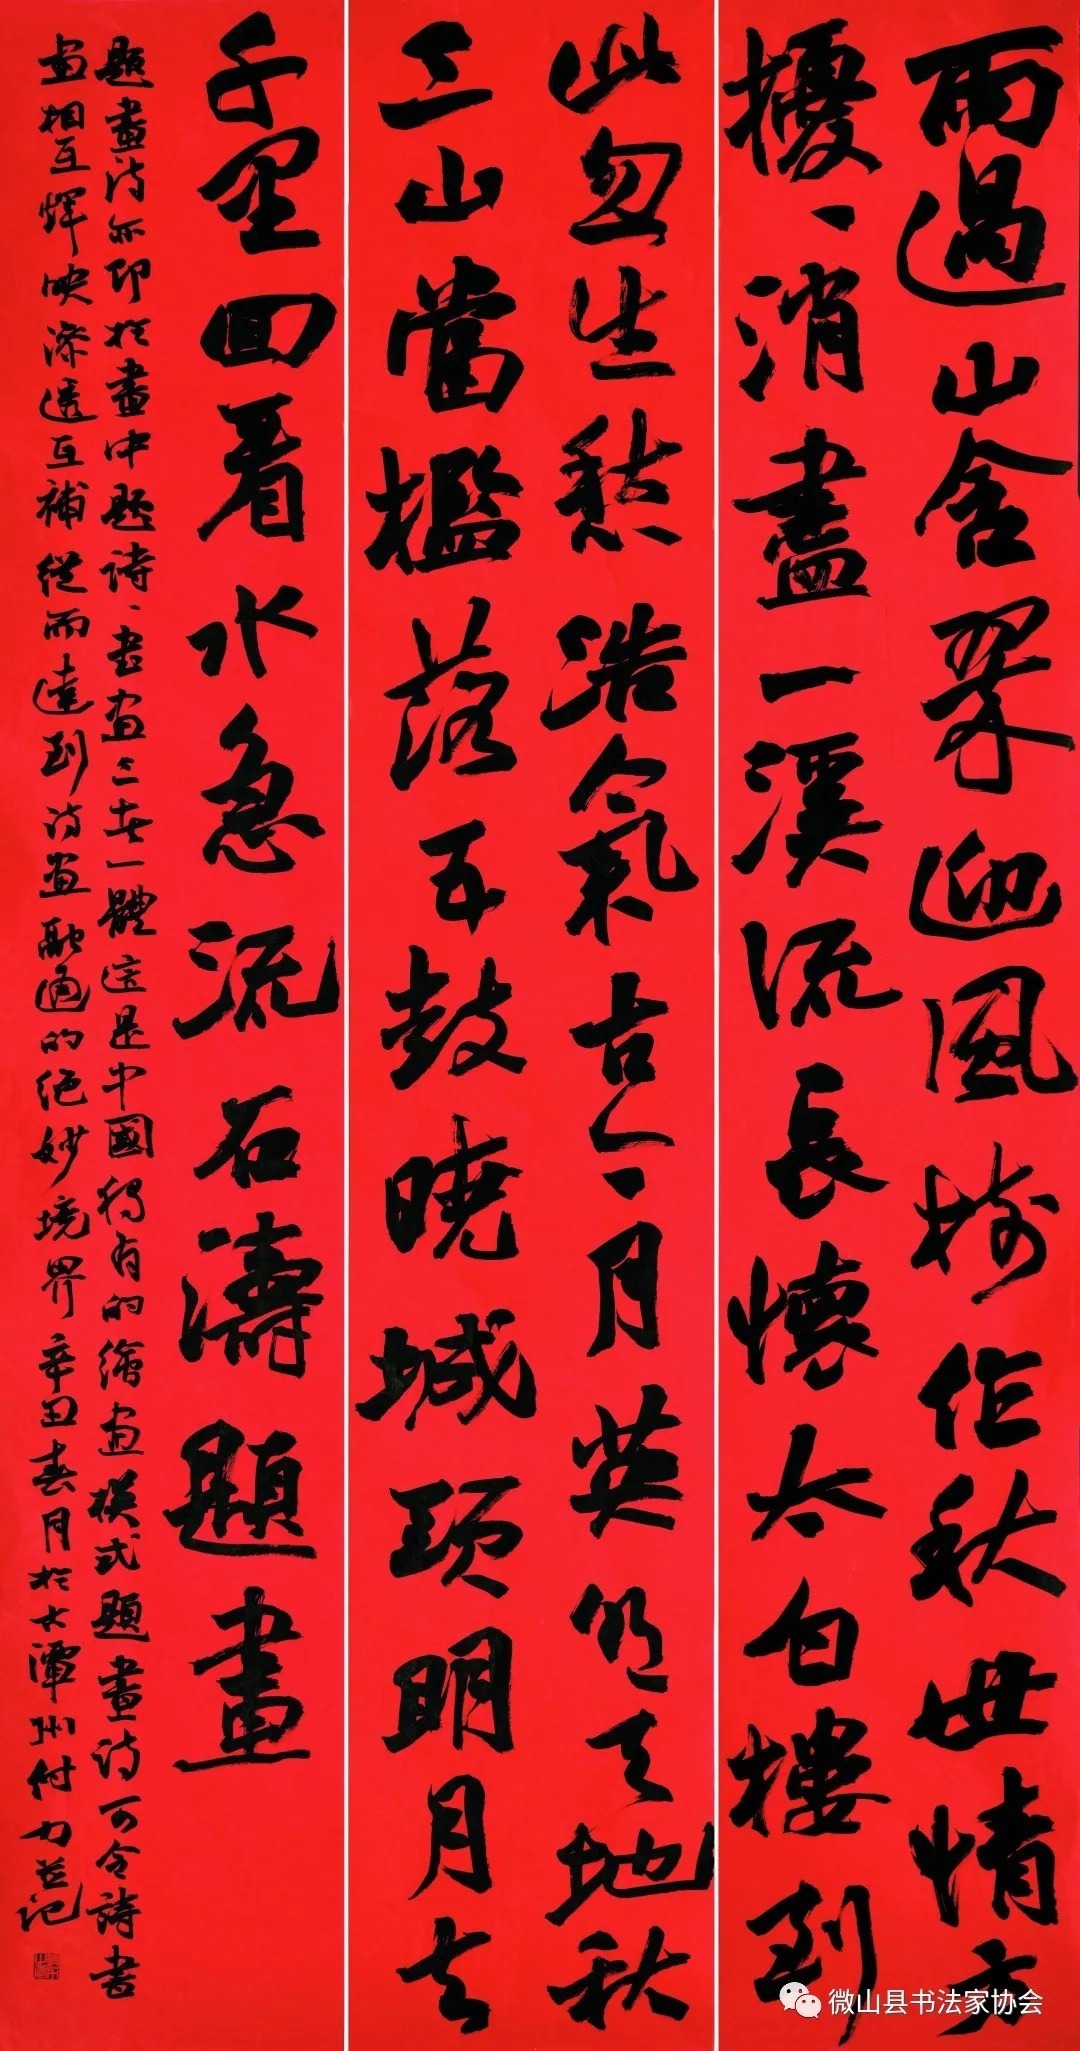 雨過山含翠迎風樹作秋世情方
擾、消盡一溪流長懷太白樓到
此忽生愁浩氣古今月英天地秋
三山當檻落五鼓曉城頭明月去
千里回看水急流石濤題畫
題畫詩亦即於畫中題詩、書畫三者一體這是中國獨有的繪畫模式題畫詩可令詩書
畫相互輝映滲透互補從而達到詩畫融通的絕妙境界辛丑春月於大潭州付力記
微山县书法家协会